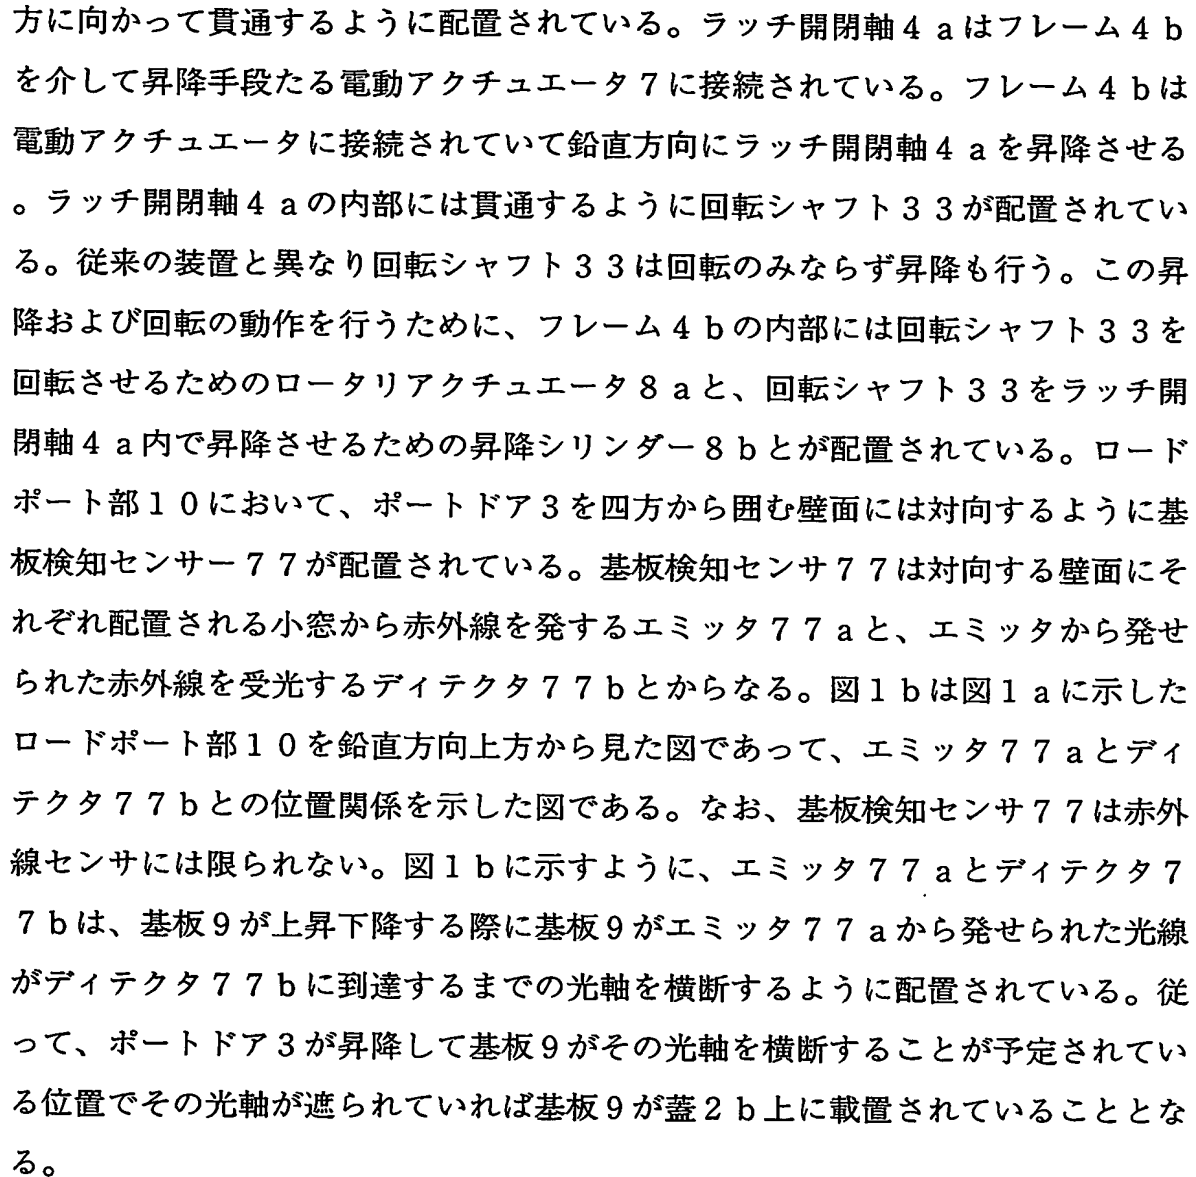 方に向かって貫通するように配置されている。ラッチ開閉軸４ａはフレーム４ｂ
を介して昇降手段たる電動アクチュエータ７に接続されている。フレーム４ｂは
電動アクチュエータに接続されていて鉛直方向にラッチ開閉軸４ａを昇降させる
。ラッチ開閉軸４ａの内部には貫通するように回転シャフト３３が配置されてい
る。従来の装置と異なり回転シャフト３３は回転のみならず昇降も行う。この昇
降および回転の動作を行うために、フレーム４ｂの内部には回転シャフト３３を
回転させるためのロータリアクチュエータ８ａと、回転シャフト３３をラッチ開
閉軸４ａ内で昇降させるための昇降シリンダー８ｂとが配置されている。ロード
ポート部１０において、ポートドア３を四方から囲む壁面には対向するように基
板検知センサー７７が配置されている。基板検知センサ７７は対向する壁面にそ
れぞれ配置される小窓から赤外線を発するエミッタ７７ａと、エミッタから発せ
られた赤外線を受光するディテクタ７７ｂとからなる。図１ｂは図１ａに示した
ロードポート部１０を鉛直方向上方から見た図であって、エミッタ７７ａとディ
テクタ７７ｂとの位置関係を示した図である。なお、基板検知センサ７７は赤外
線センサには限られない。図１ｂに示すように、エミッタ７７ａとディテクタ７
７ｂは、基板９が上昇下降する際に基板９がエミッタ７７ａから発せられた光線
がディテクタ７７ｂに到達するまでの光軸を横断するように配置されている。従
って、ポートドア３が昇降して基板９がその光軸を横断することが予定されてい
る位置でその光軸が遮られていれば基板９が蓋２ｂ上に載置されていることとな
る。